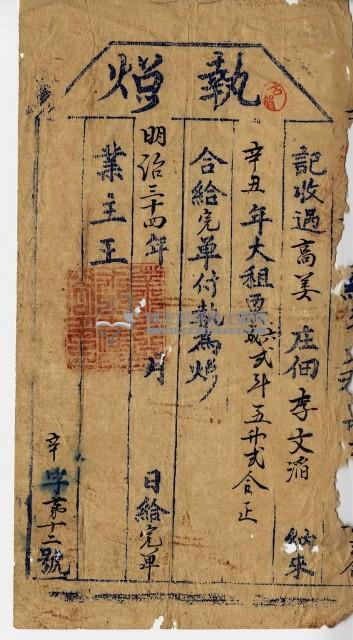 執炤
記收過高美庄佃李文滔 來
辛丑年大租粟 弍斗五升弍合正
合給完單付執為炤
明治三十四年 月 日給完單
業主王
辛 字第十二號